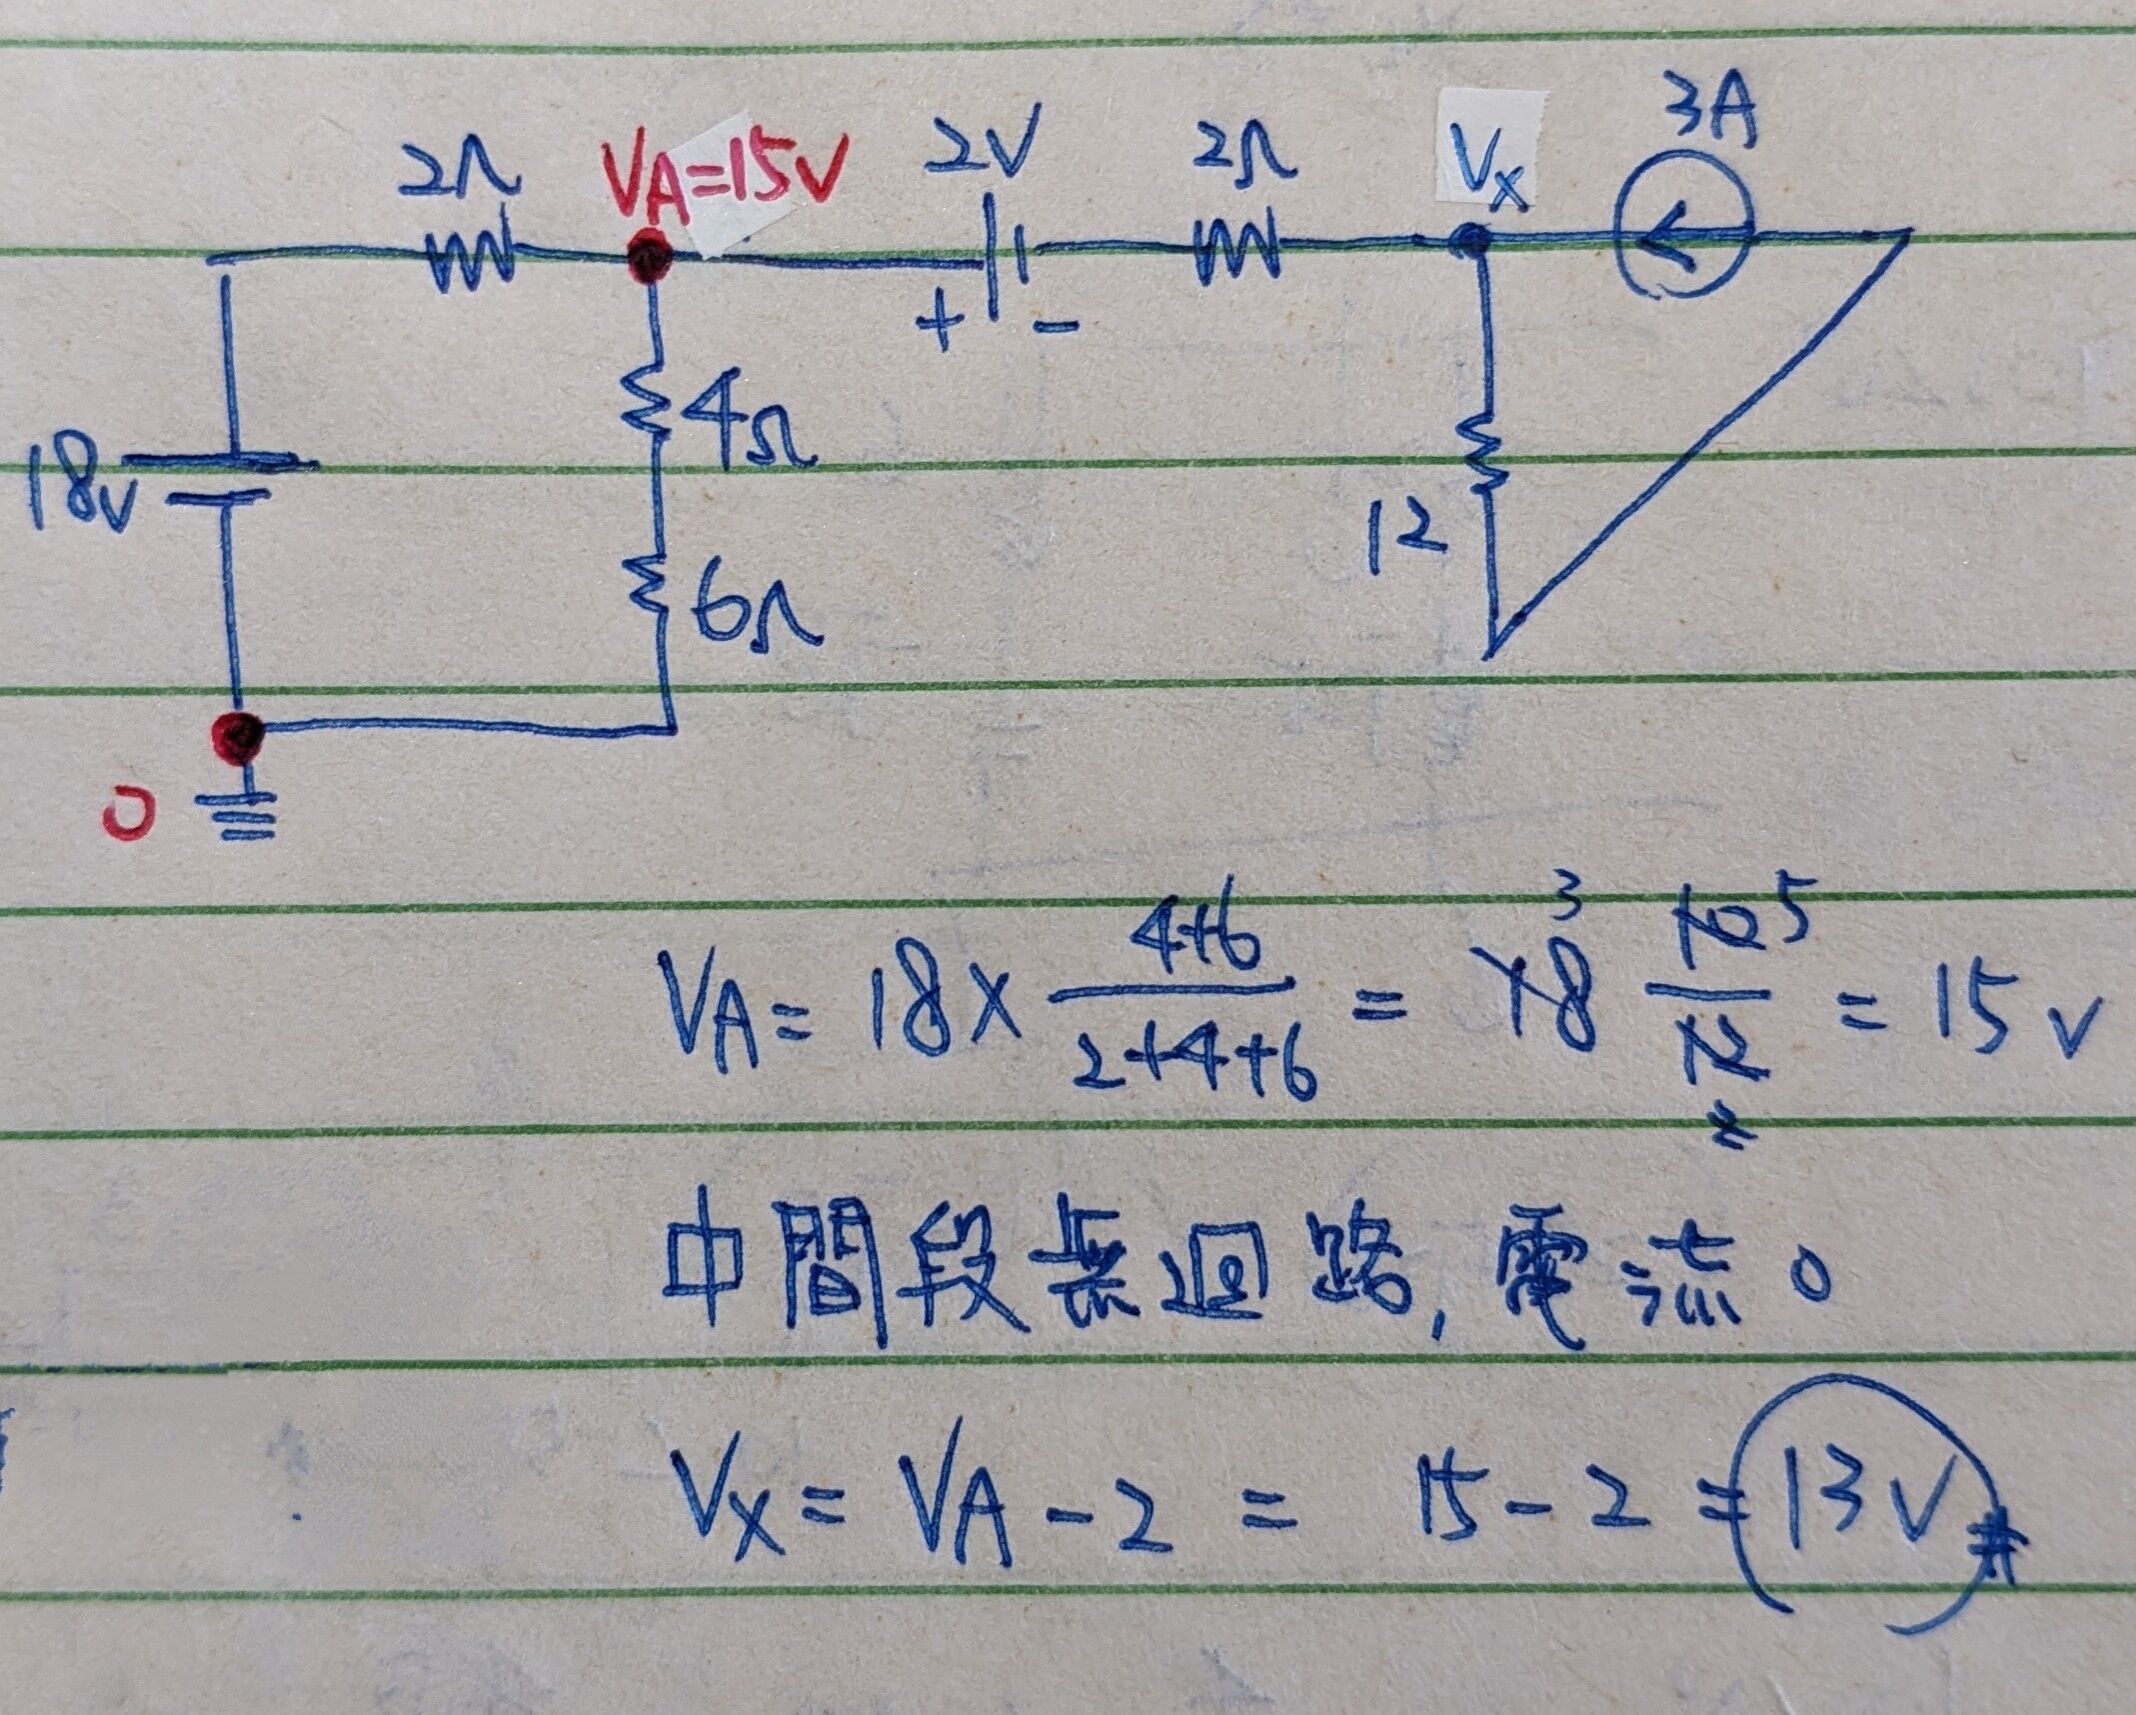 2Ω VA=15V 2V 2Ω Vx 3A
+ -
18V 4Ω
12
6Ω
0
VA= 18× (4+6)/(2+4+6) = 18 3 10 5/12 2 = 15 V
中間段無迴路, 電流 0
Vx = VA - 2 = 15 - 2 = 13V #